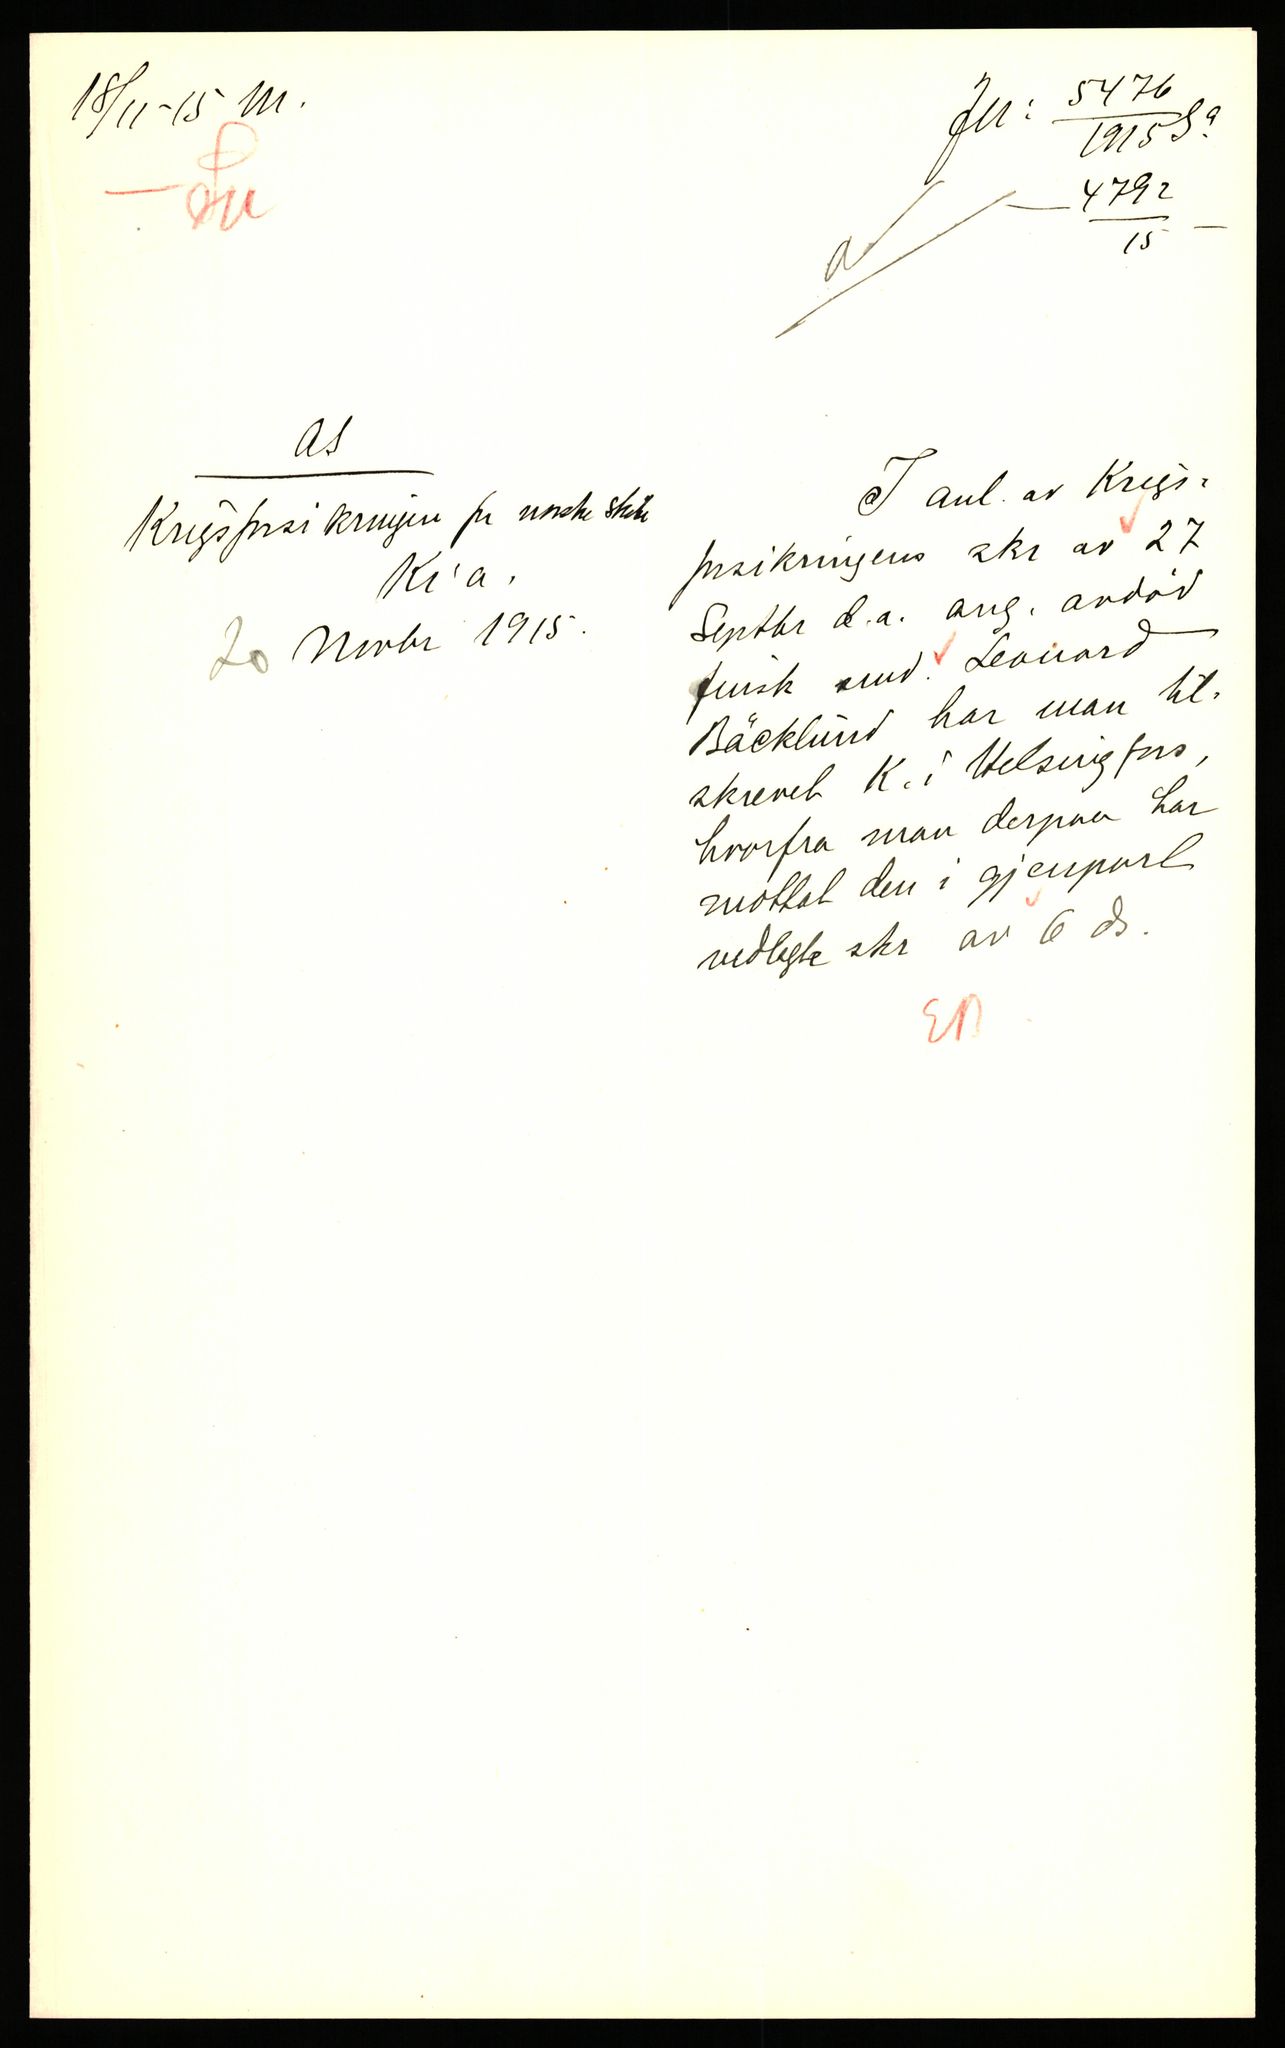 18/11-15 M.
Jn: 5476
1915 Sa
— 4792
15 —
AS
Krigsforsikringen for norske skibe
Kr'a.
20 Novbr 1915.
I anl. av Krigs-
forsikringens skr av 27
Septbr d.a. ang. avdød
finsk und. Leonard
Bäcklund har man til-
skrevet K. i Helsingfors,
hvorfra man derpaa har
mottat den i gjenpart
vedlagte skr av 6 ds.
EB